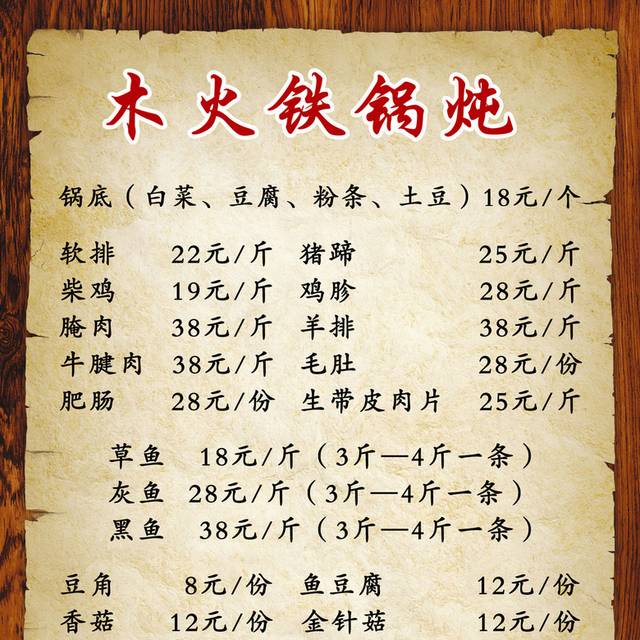 木火铁锅炖
锅底（白菜、豆腐、粉条、土豆）18元/个
软排 22元/斤 猪蹄 25元/斤
柴鸡 19元/斤 鸡胗 28元/斤
腌肉 38元/斤 羊排 38元/斤
牛腱肉 38元/斤 毛肚 28元/份
肥肠 28元/份 生带皮肉片 25元/斤
草鱼 18元/斤（3斤—4斤一条）
灰鱼 28元/斤（3斤—4斤一条）
黑鱼 38元/斤（3斤—4斤一条）
豆角 8元/份 鱼豆腐 12元/份
香菇 12元/份 金针菇 12元/份